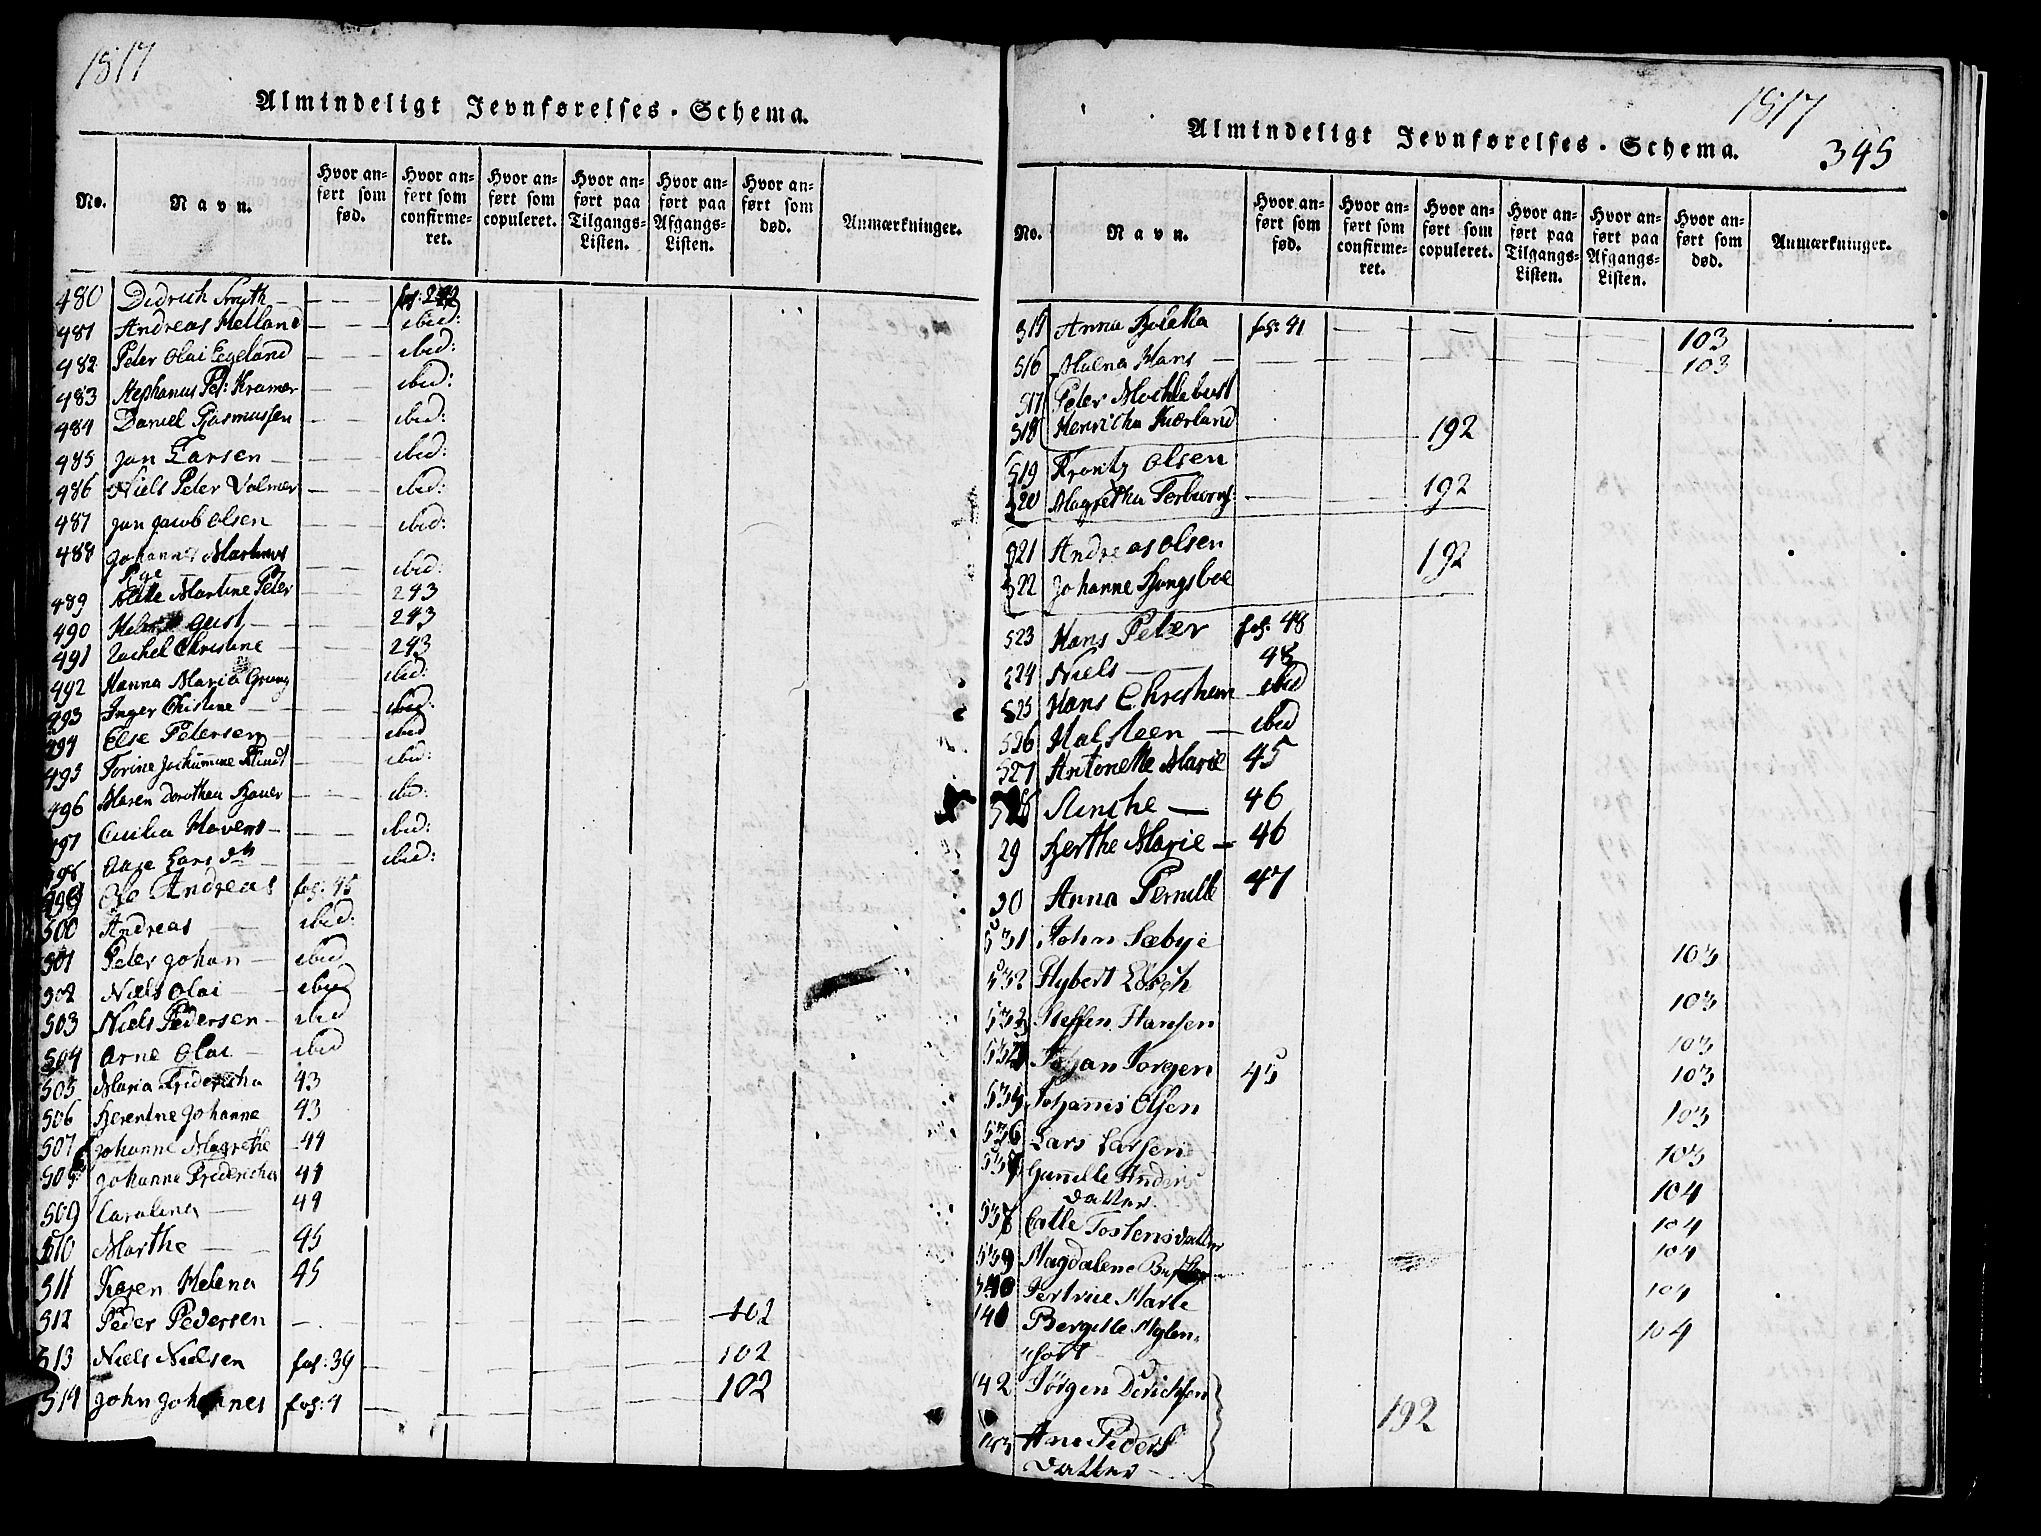 1817
Almindeligt Jevnførelses-Schema.
No.
Navn.
Hvor an-
ført som
fød.
Hvor an-
ført som
confirme-
ret.
Hvor an-
ført som
copuleret.
Hvor an-
ført paa
Tilgangs-
Listen.
Hvor an-
ført paa
Afgangs-
Listen.
Hvor an-
ført som
død.
Anmærkninger.
480 Didrich Smyth fol: 242
481 Andreas Helland ibid:
482 Peter Olai Egeland ibid:
483 Stephanus Pet: Kramer ibid:
484 Daniel Rasmussen ibid:
485 Jan Larsen ibid:
486 Niels Peter Valmer ibid:
487 Jan Jacob Olsen ibid:
488 Johannes Martinus
ibid:
489 Martine Peter 243
490 243
491 Rachel Christine 243
492 Hanna Maria Grung ibid.
493 Inger Christine ibid.
494 Else Petersen ibid
495 Torine ibid:
496 Maren Dorothea ibid:
497 Cicilia Havers ibid:
498 Aase Lars ibid:
499 Ole Andreas fol: 45
500 Andreas ibid:
501 Peter Johan ibid
502 Niels Olai ibid
503 Niels Pedersen ibid
504 Arne Olai ibid
505 Maria Fridericha 43
506 Berentne Johanne 43
507 Johanne Magrethe 44
508 Johanne Fridericha 44
509 Carolina 44
510 Marthe 45
511 Karen Helena 45
512 Peder Pedersen 102
513 Niels Nielsen fol: 39 102
514 John Johannes fol: 4 102
1817
345
Almindeligt Jevnførelses-Schema.
No.
Navn.
Hvor an-
ført som
fød.
Hvor an-
ført som
confirme-
ret.
Hvor an-
ført som
copuleret.
Hvor an-
ført paa
Tilgangs-
Listen.
Hvor an-
ført paa
Afgangs-
Listen.
Hvor an-
ført som
død.
Anmærkninger.
515 Anna fol: 41 103
516 Malena Hans 103
517 Peter
518 192
519 Olsen
520 Magretha Torbiørns: 192
521 Andreas Olsen
192
522 Johanne
523 Hans Peter fol: 48
524 Niels 48
525 Hans Christian ibid
526 Halsteen ibid
527 Antonette Marie 45
528 46
29 Berthe Marie 46
30 Anna Pernille 47
531 John Sæbye 103
532 Hybert Lösch 103
533 Steffen Hansen 103
534 Johan Jørgen 45 103
535 Johannes Olsen 103
536 Lars Larsen 103
537 Gunnille Anders
datter 104
538 Tostensdatter 104
539 Magdalene 104
540 Marte 104
Bergitte 104
142 Jørgen Dirichsen
192
Ane Peders
datter